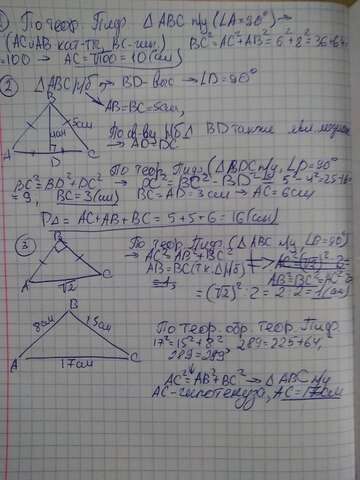 ① По теор. Пиф. △ABC п/у (∠A=90°) →
(AC и AB кат-ты, BC-гип. BC²=AC²+AB²=6²+8²=36+64
=100 → AC=√100=10(см)
② △ABC р/б → BD-выс → ∠D=90°
AB=BC=5см,
B
5см
4см
A D C
По св-ву р/б △ BD также явл.
→ AD=DC
По теор. Пиф. (△BDC п/у, ∠D=90°
BC²=BD²+DC² → DC²=BC²-BD²=5²-4²=25-16
=9, BC=3(см) BC=AD=3см → AC=6см
P△=AC+AB+BC=5+5+6=16(см)
③ По теор. Пиф. (△ABC п/у, ∠B=90°)
B
→ AC²=AB²+BC²
AB=BC(т.к. △р/б)
A √2 C
=(√2)²:2=2:2=1(см)
B
8см 15см
A 17см C
По теор. обр. теор. Пиф.
17²=15²+8² 289=225+64,
289=289
AC²=AB²+BC² → △ABC п/у
AC-гипотенуза, AC=17см